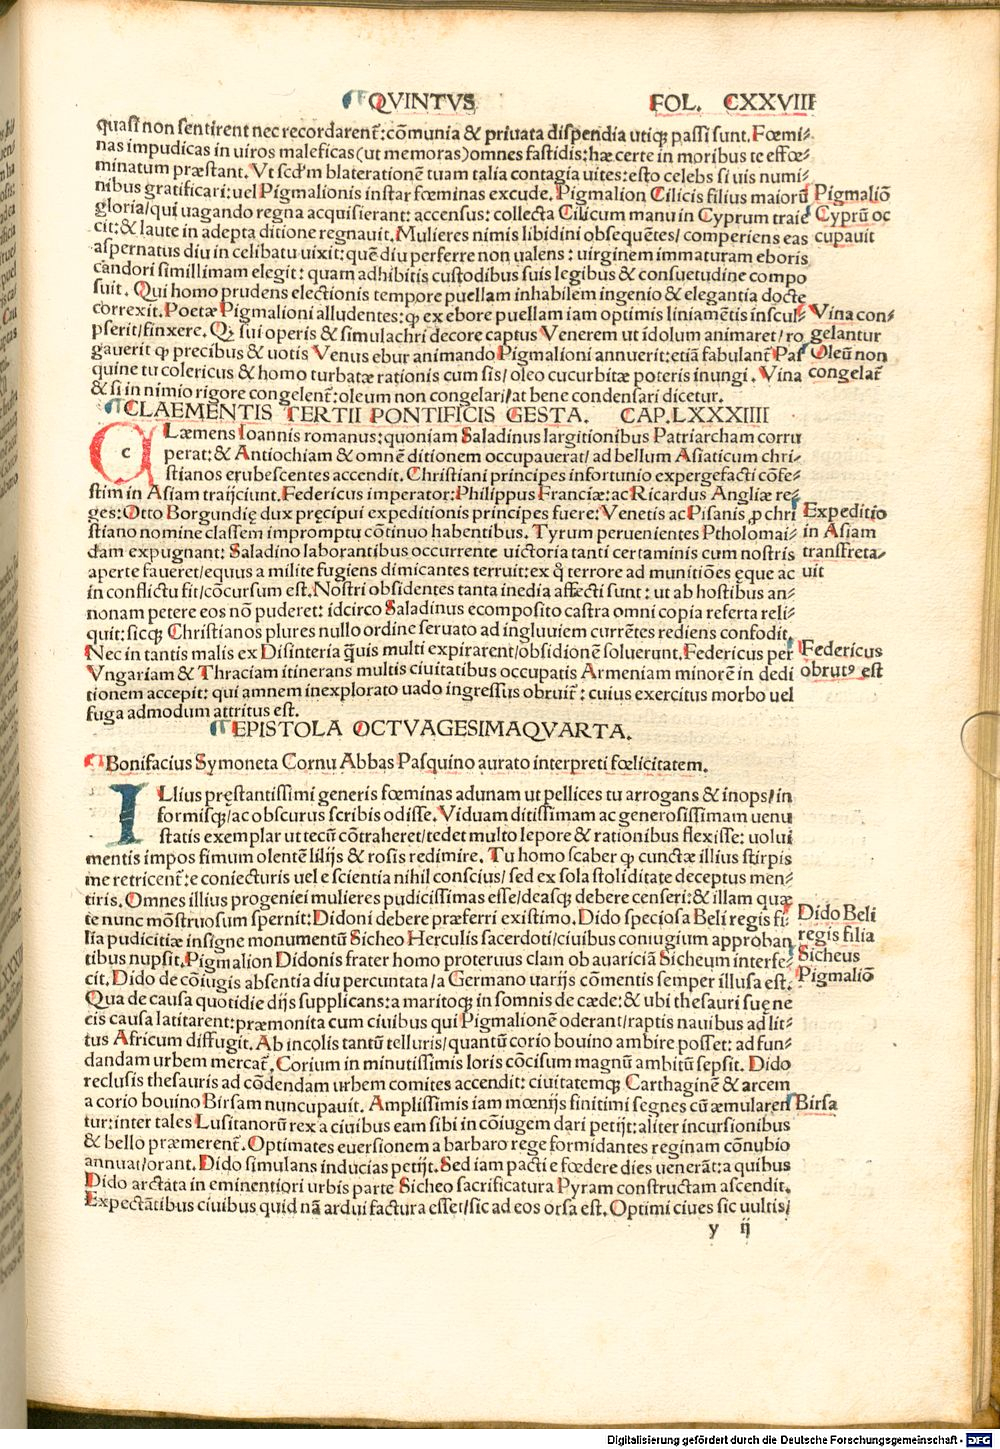 QVINTVS FOL. CXXVIII
quasi non sentirent nec recordarent̃: cõmunia & priuata dispendia utiq; passi sunt. Fœmi⸗
nas impudicas in uiros maleficas (ut memoras) omnes fastidis: hæ certe in moribus te effœ⸗
minatum præstant. Vt scd'm blaterationẽ tuam talia contagia uites: esto celebs si uis numi⸗
nibus gratificari: uel Pigmalionis instar fœminas excude. Pigmalion Cilicis filius maiorũ
gloria/qui uagando regna acquisierant: accensus: collecta Cilicum manu in Cyprum traie⸗
cit: & laute in adepta ditione regnauit. Mulieres nimis libidini obsequẽtes/comperiens eas
aspernatus diu in celibatu uixit: quẽ diu perferre non ualens: uirginem immaturam eboris
candori simillimam elegit: quam adhibitis custodibus suis legibus & consuetudine compo
suit. Qui homo prudens electionis tempore puellam inhabilem ingenio & elegantia docte
correxit. Poetæ Pigmalioni alludentes: ꝙ ex ebore puellam iam optimis liniamẽtis inscul⸗
pserit/finxere. Qꝫ sui operis & simulachri decore captus Venerem ut idolum animaret/ro
gauerit ꝙ precibus & uotis Venus ebur animando Pigmalioni annuerit: etiã fabulant̃ Pas⸗
quine tu colericus & homo turbatæ rationis cum sis/oleo cucurbitæ poteris inungi. Vina
& si in nimio rigore congelent̃: oleum non congelari/at bene condensari dicetur.
Pigmaliõ
Cyprũ oc
cupauit
Vina con⸗
gelantur
Oleũ non
congelat̃
CLAEMENTIS TERTII PONTIFICIS GESTA. CAP. LXXXIIII
CLæmens Ioannis romanus: quoniam Saladinus largitionibus Patriarcham corru
perat: & Antiochiam & omnẽ ditionem occupauerat/ad bellum Asiaticum chri⸗
stianos erubescentes accendit. Christiani principes infortunio expergefacti cõfe⸗
stim in Asiam traijciunt. Federicus imperator: Philippus Franciæ: ac Ricardus Angliæ re⸗
ges: Otto Borgundię dux pręcipui expeditionis principes fuere: Venetis ac Pisanis ꝓ chri
stiano nomine classem impromptu cõtinuo habentibus. Tyrum peruenientes Ptholomai⸗
dam expugnant: Saladino laborantibus occurrente uictoria tanti certaminis cum nostris
aperte faueret/equus a milite fugiens dimicantes terruit: ex q̃ terrore ad munitiões eque ac
in conflictu fit/cõcursum est. Nostri obsidentes tanta inedia affecti sunt: ut ab hostibus an⸗
nonam petere eos nõ puderet: idcirco Saladinus ecomposito castra omni copia referta reli⸗
quit: sicq; Christianos plures nullo ordine seruato ad ingluuiem currẽtes rediens confodit.
Nec in tantis malis ex Disinteria q̃uis multi expirarent/obsidionẽ soluerunt. Federicus per
Vngariam & Thraciam itinerans multis ciuitatibus occupatis Armeniam minorẽ in dedi
tionem accepit: qui amnem inexplorato uado ingressus obruit̃: cuius exercitus morbo uel
fuga admodum attritus est.
Expeditio
in Asiam
transfreta⸗
uit
Federicus
obrutꝰ est
EPISTOLA OCTVAGESIMAQVARTA.
Bonifacius Symoneta Cornu Abbas Pasquino aurato interpreti fœlicitatem.
ILlius pręstantissimi generis fœminas adunam ut pellices tu arrogans & inops/in
formisq;/ac obscurus scribis odisse. Viduam ditissimam ac generosissimam uenu
statis exemplar ut tecũ cõtraheret/tedet multo lepore & rationibus flexisse: uolui
mentis impos fimum olentẽ lilijs & rosis redimire. Tu homo scaber ꝙ cunctæ illius stirpis
me retricent̃: e coniecturis uel e scientia nihil conscius/sed ex sola stoliditate deceptus men⸗
tiris. Omnes illius progeniei mulieres pudicissimas esse/deasq; debere censeri: & illam quæ
te nunc mõstruosum spernit: Didoni debere præferri existimo. Dido speciosa Beli regis fi⸗
lia pudicitiæ insigne monumentũ Sicheo Herculis sacerdoti/ciuibus coniugium approban
tibus nupsit. Pigmalion Didonis frater homo proteruus clam ob auariciã Sicheum interfe⸗
cit. Dido de cõiugis absentia diu percuntata/a Germano uarijs cõmentis semper illusa est.
Qua de causa quotidie dijs supplicans: a maritoq; in somnis de cæde: & ubi thesauri suę ne
cis causa latitarent: præmonita cum ciuibus qui Pigmalionẽ oderant/raptis nauibus ad lit⸗
tus Africum diffugit. Ab incolis tantũ telluris/quantũ corio bouino ambire posset: ad fun⸗
dandam urbem mercat̃. Corium in minutissimis loris cõcisum magnũ ambitũ sepsit. Dido
reclusis thesauris ad cõdendam urbem comites accendit: ciuitatemq; Carthaginẽ & arcem
a corio bouino Birsam nuncupauit. Amplissimis iam mœnijs finitimi segnes cũ æmularen
tur: inter tales Lusitanorũ rex a ciuibus eam sibi in cõiugem dari petijt: aliter incursionibus
& bello præmerent̃. Optimates euersionem a barbaro rege formidantes reginam cõnubio
annuat/orant. Dido simulans inducias petijt. Sed iam pacti e fœdere dies uenerãt: a quibus
Dido arctata in eminentiori urbis parte Sicheo sacrificatura Pyram constructam ascendit.
Expectãtibus ciuibus quid nã ardui factura esset/sic ad eos orsa est. Optimi ciues sic uultis/
Dido Beli
regis filia
Sicheus
Pigmaliõ
Birsa
y ij
Digitalisierung gefördert durch die Deutsche Forschungsgemeinschaft - DFG